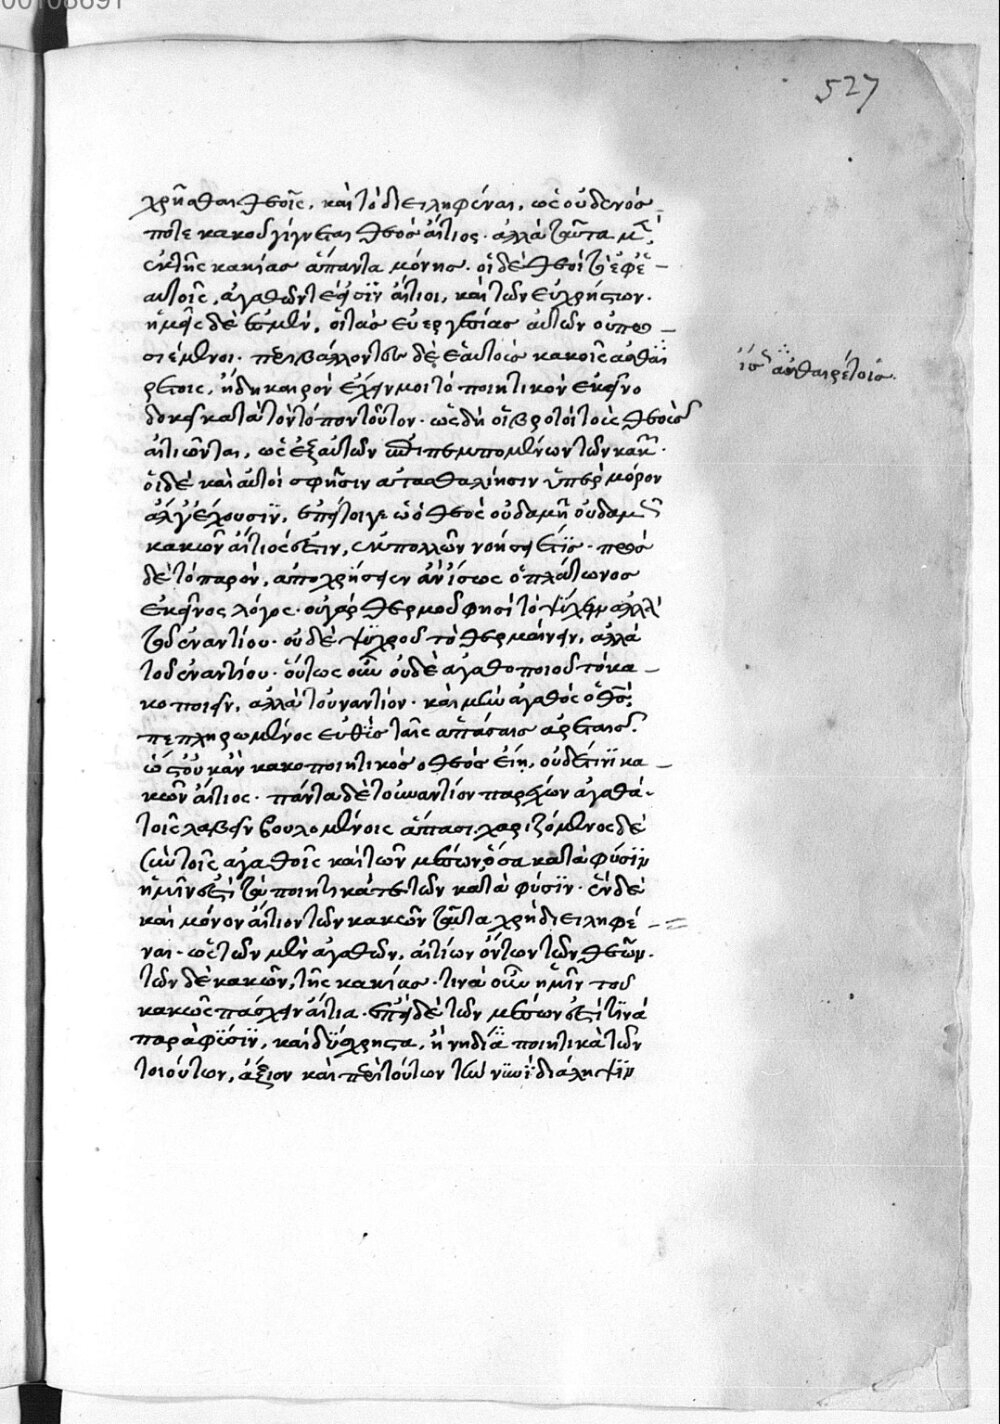 527
χρῆσθαι θεοῖς, καὶ τὸ διειληφέναι, ὡς οὐδενός
ποτε κακοῦ γίγνεται θεὸς αἴτιος. ἀλλὰ ταῦτα μὲν
ἐκ τῆς κακίας ἅπαντα μόνης. οἱ δὲ θεοὶ τὸ ἐφ' ἑ-
αυτοῖς, ἀγαθῶν τέ εἰσιν αἴτιοι, καὶ τῶν εὐχρήστων.
ἡμεῖς δὲ ἐσμὲν, οἱ τὰς εὐεργεσίας αὐτῶν οὐ προ-
σιέμενοι. περιβάλλοντες δὲ ἑαυτοὺς κακοῖς αὐθαι
ρέτοις, ἤδη καιρὸν ἔχειν μοι τὸ ποιητικὸν ἐκεῖνο
ἰσ αὐθαιρέτοις.
δοκεῖ κατὰ τὸν τόπον τοῦτον. ὡς δὴ οἱ βροτοὶ τοὺς θεοὺς
αἰτιῶνται, ὡς ἐξ αὐτῶν ἐπιπεμπομένων τῶν κακῶν.
οἱ δὲ καὶ αὐτοὶ σφῇσιν ἀτασθαλίῃσιν ὑπὲρ μόρον
ἄλγε' ἔχουσιν, ἐπεί τοί γε ὡς ὁ θεὸς οὐδαμῆ οὐδαμῶς
κακῶν αἴτιός ἐστιν, ἐκ πολλῶν νοήσειέ τις. πρὸς
δὲ τὸ παρὸν, ἀποχρήσειεν ἂν ἴσως ὁ πλάτωνος
ἐκεῖνος λόγος. οὐ γὰρ θερμοῦ φησὶ τὸ ψύχειν ἀλλὰ
τοῦ ἐναντίου. οὐδὲ ψυχροῦ τὸ θερμαίνειν, ἀλλὰ
τοῦ ἐναντίου. οὕτως οὖν οὐδὲ ἀγαθοποιοῦ τὸ κα-
κοποιεῖν, ἀλλὰ τοὐναντίον. καὶ μὴν ἀγαθὸς ὁ θεός,
πεπληρωμένος εὐθὺς ταῖς ἁπάσαις ἀρεταῖς.
ὥστ' οὐκ ἂν κακοποιητικὸς ὁ θεὸς εἴη, οὐδέ τινι κα-
κῶν αἴτιος. πάντα δὲ τοὐναντίον παρέχων ἀγαθὰ
τοῖς λαβεῖν βουλομένοις ἅπασι. χαριζόμενος δὲ
σὺν τοῖς ἀγαθοῖς καὶ τῶν μέσων, ὅσα κατὰ φύσιν
ἡμῖν ἐστὶ τά ποιητικά τε τῶν κατὰ φύσιν. ἓν δὲ
καὶ μόνον αἴτιον τῶν κακῶν ταῦτα χρὴ διειληφέ-
ναι. ὡς τῶν μὲν ἀγαθῶν, αἰτίων ὄντων τῶν θεῶν.
τῶν δὲ κακῶν, τῆς κακίας. τίνα οὖν ἡμῖν τοῦ
κακῶς πάσχειν αἴτια. ἐπειδὲ τῶν μέσων ἐστί τινὰ
παρὰ φύσιν, καὶ δύσχρηστα, ἢ νὴ δία ποιητικὰ τῶν
τοιούτων, ἄξιον καὶ περὶ τούτων τὴν νῦν διάληψιν